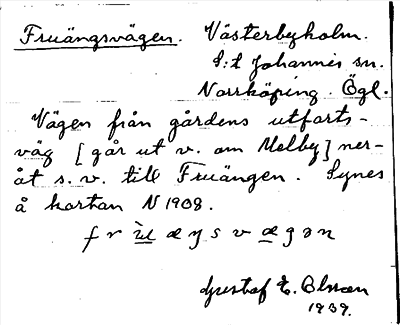 Fruängsvägen. Västerbyholm.
S:t Johannis sn.
Norrköping. Ögl.
Vägen från gårdens utfarts-
väg [går ut v. om Melby] ner-
åt s. v. till Fruängen. Synes
å kartan N 1908.
Gustaf E. Olsson
1939.